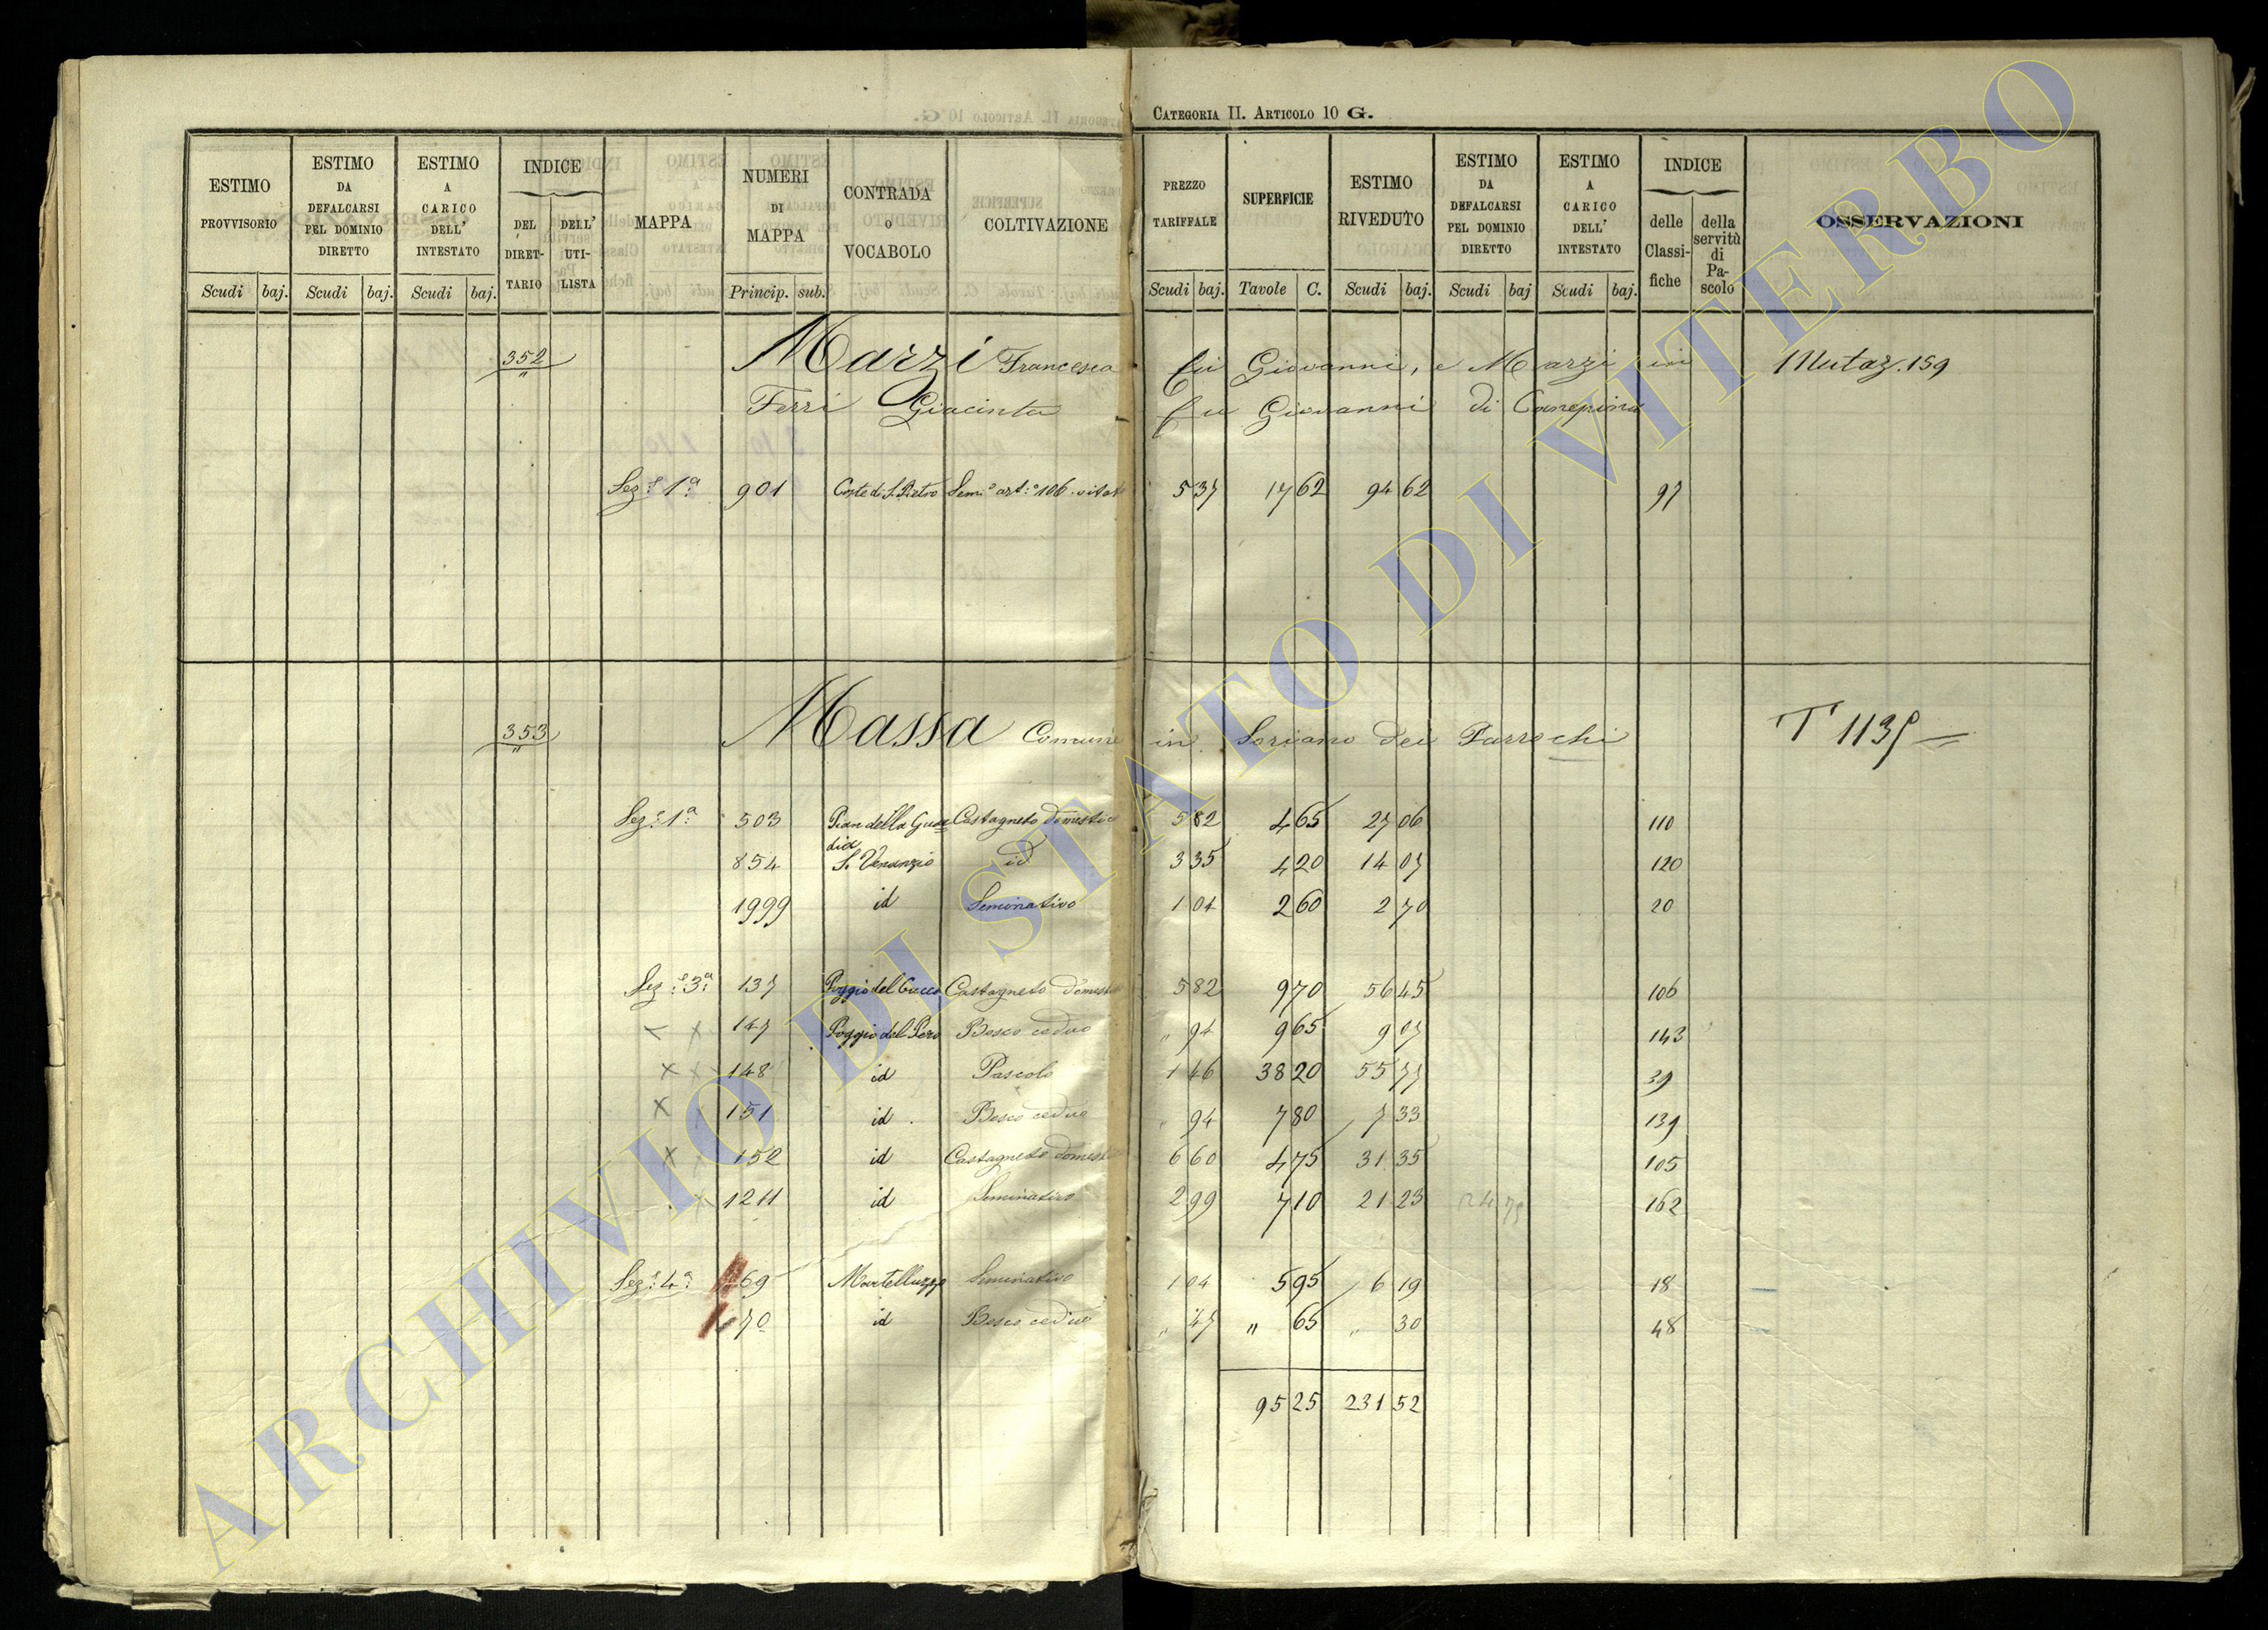 CATEGORIA II. ARTICOLO 10 G.
ESTIMO PROVVISORIO Scudi baj.
ESTIMO DA DEFALCARSI PEL DOMINIO DIRETTO Scudi baj.
ESTIMO A CARICO DELL' INTESTATO Scudi baj.
INDICE DEL DIRET-TARIO DELL' UTI-LISTA
MAPPA
NUMERI DI MAPPA Princip. sub.
CONTRADA o VOCABOLO
COLTIVAZIONE
PREZZO TARIFFALE Scudi baj.
SUPERFICIE Tavole C.
ESTIMO RIVEDUTO Scudi baj.
ESTIMO DA DEFALCARSI PEL DOMINIO DIRETTO Scudi baj
ESTIMO A CARICO DELL' INTESTATO Scudi baj.
INDICE delle Classi-fiche della servitù di Pa-scolo
OSSERVAZIONI
352 Marzi Francesca fu Giovanni, e Marzi in Mutaz. 159
Ferri Giacinta fu Giovanni di Canepina
Sez.e 1a 901 Coste di S. Pietro Sem.o art.o 106 vitat 5 37 17 62 94 62 97
353 Massa Comune in Soriano dei Parrochi T 1135
Sez.e 1a 503 Pian della Guar Castagneto domestico 5 82 4 65 27 06 110
dia
854 S. Venanzio id 3 35 4 20 14 07 120
1999 id Seminativo 1 04 2 60 2 70 20
Sez.e 3a 137 Poggio del Cucco Castagneto domest 5 82 9 70 56 45 106
147 Poggio del Pero Bosco ceduo " 94 9 65 9 07 143
148 id Pascolo 1 46 38 20 55 77 39
151 id Bosco ceduo " 94 7 80 7 33 139
152 id Castagneto domest 6 60 4 75 31 35 105
1211 id Seminativo 2 99 7 10 21 23 162
Sez.e 4a 69 Martelluzzo Seminativo 1 04 5 95 6 19 18
70 id Bosco ceduo " 47 " 65 " 30 48
95 25 231 52
ARCHIVIO DI STATO DI VITERBO